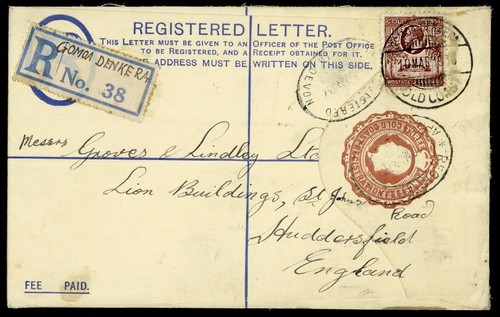 REGISTERED LETTER.
THIS LETTER MUST BE GIVEN TO AN OFFICER OF THE POST OFFICE
TO BE REGISTERED, AND A RECEIPT OBTAINED FOR IT.
ADDRESS MUST BE WRITTEN ON THIS SIDE.
R
GOMOA DENKERA
No. 38
GOLD COAST
DEVON
REGISTERED
Messrs Groves & Lindley Ltd
Lion Buildings, St John's Road
Huddersfield
England
FEE PAID.